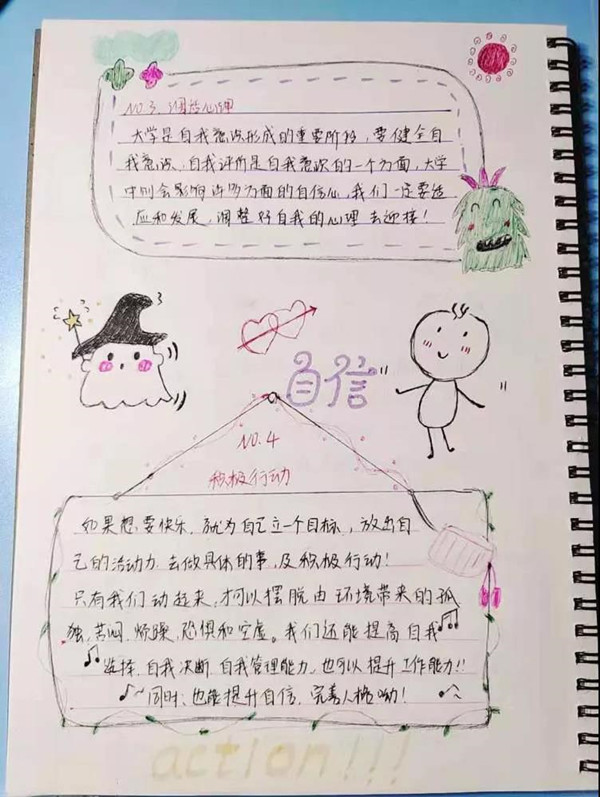 NO.3.调整心理
大学是自我意识形成的重要阶段，要健全自
我意识，自我评价是自我意识的一个方面，大学
中则会影响许多方面的自信心，我们一定要适
应和发展，调整好自我的心理去迎接！
自信
NO.4
积极行动
如果想要快乐，就为自己立一个目标，放出自
己的活动力去做具体的事，及积极行动！
只有我们动起来，才可以摆脱由环境带来的孤
独，苦闷，烦躁，恐惧和空虚。我们还能提高自我
选择，自我决断，自我管理能力，也可以提升工作能力！！
同时，也能提升自信，完善人格呦！
action!!!